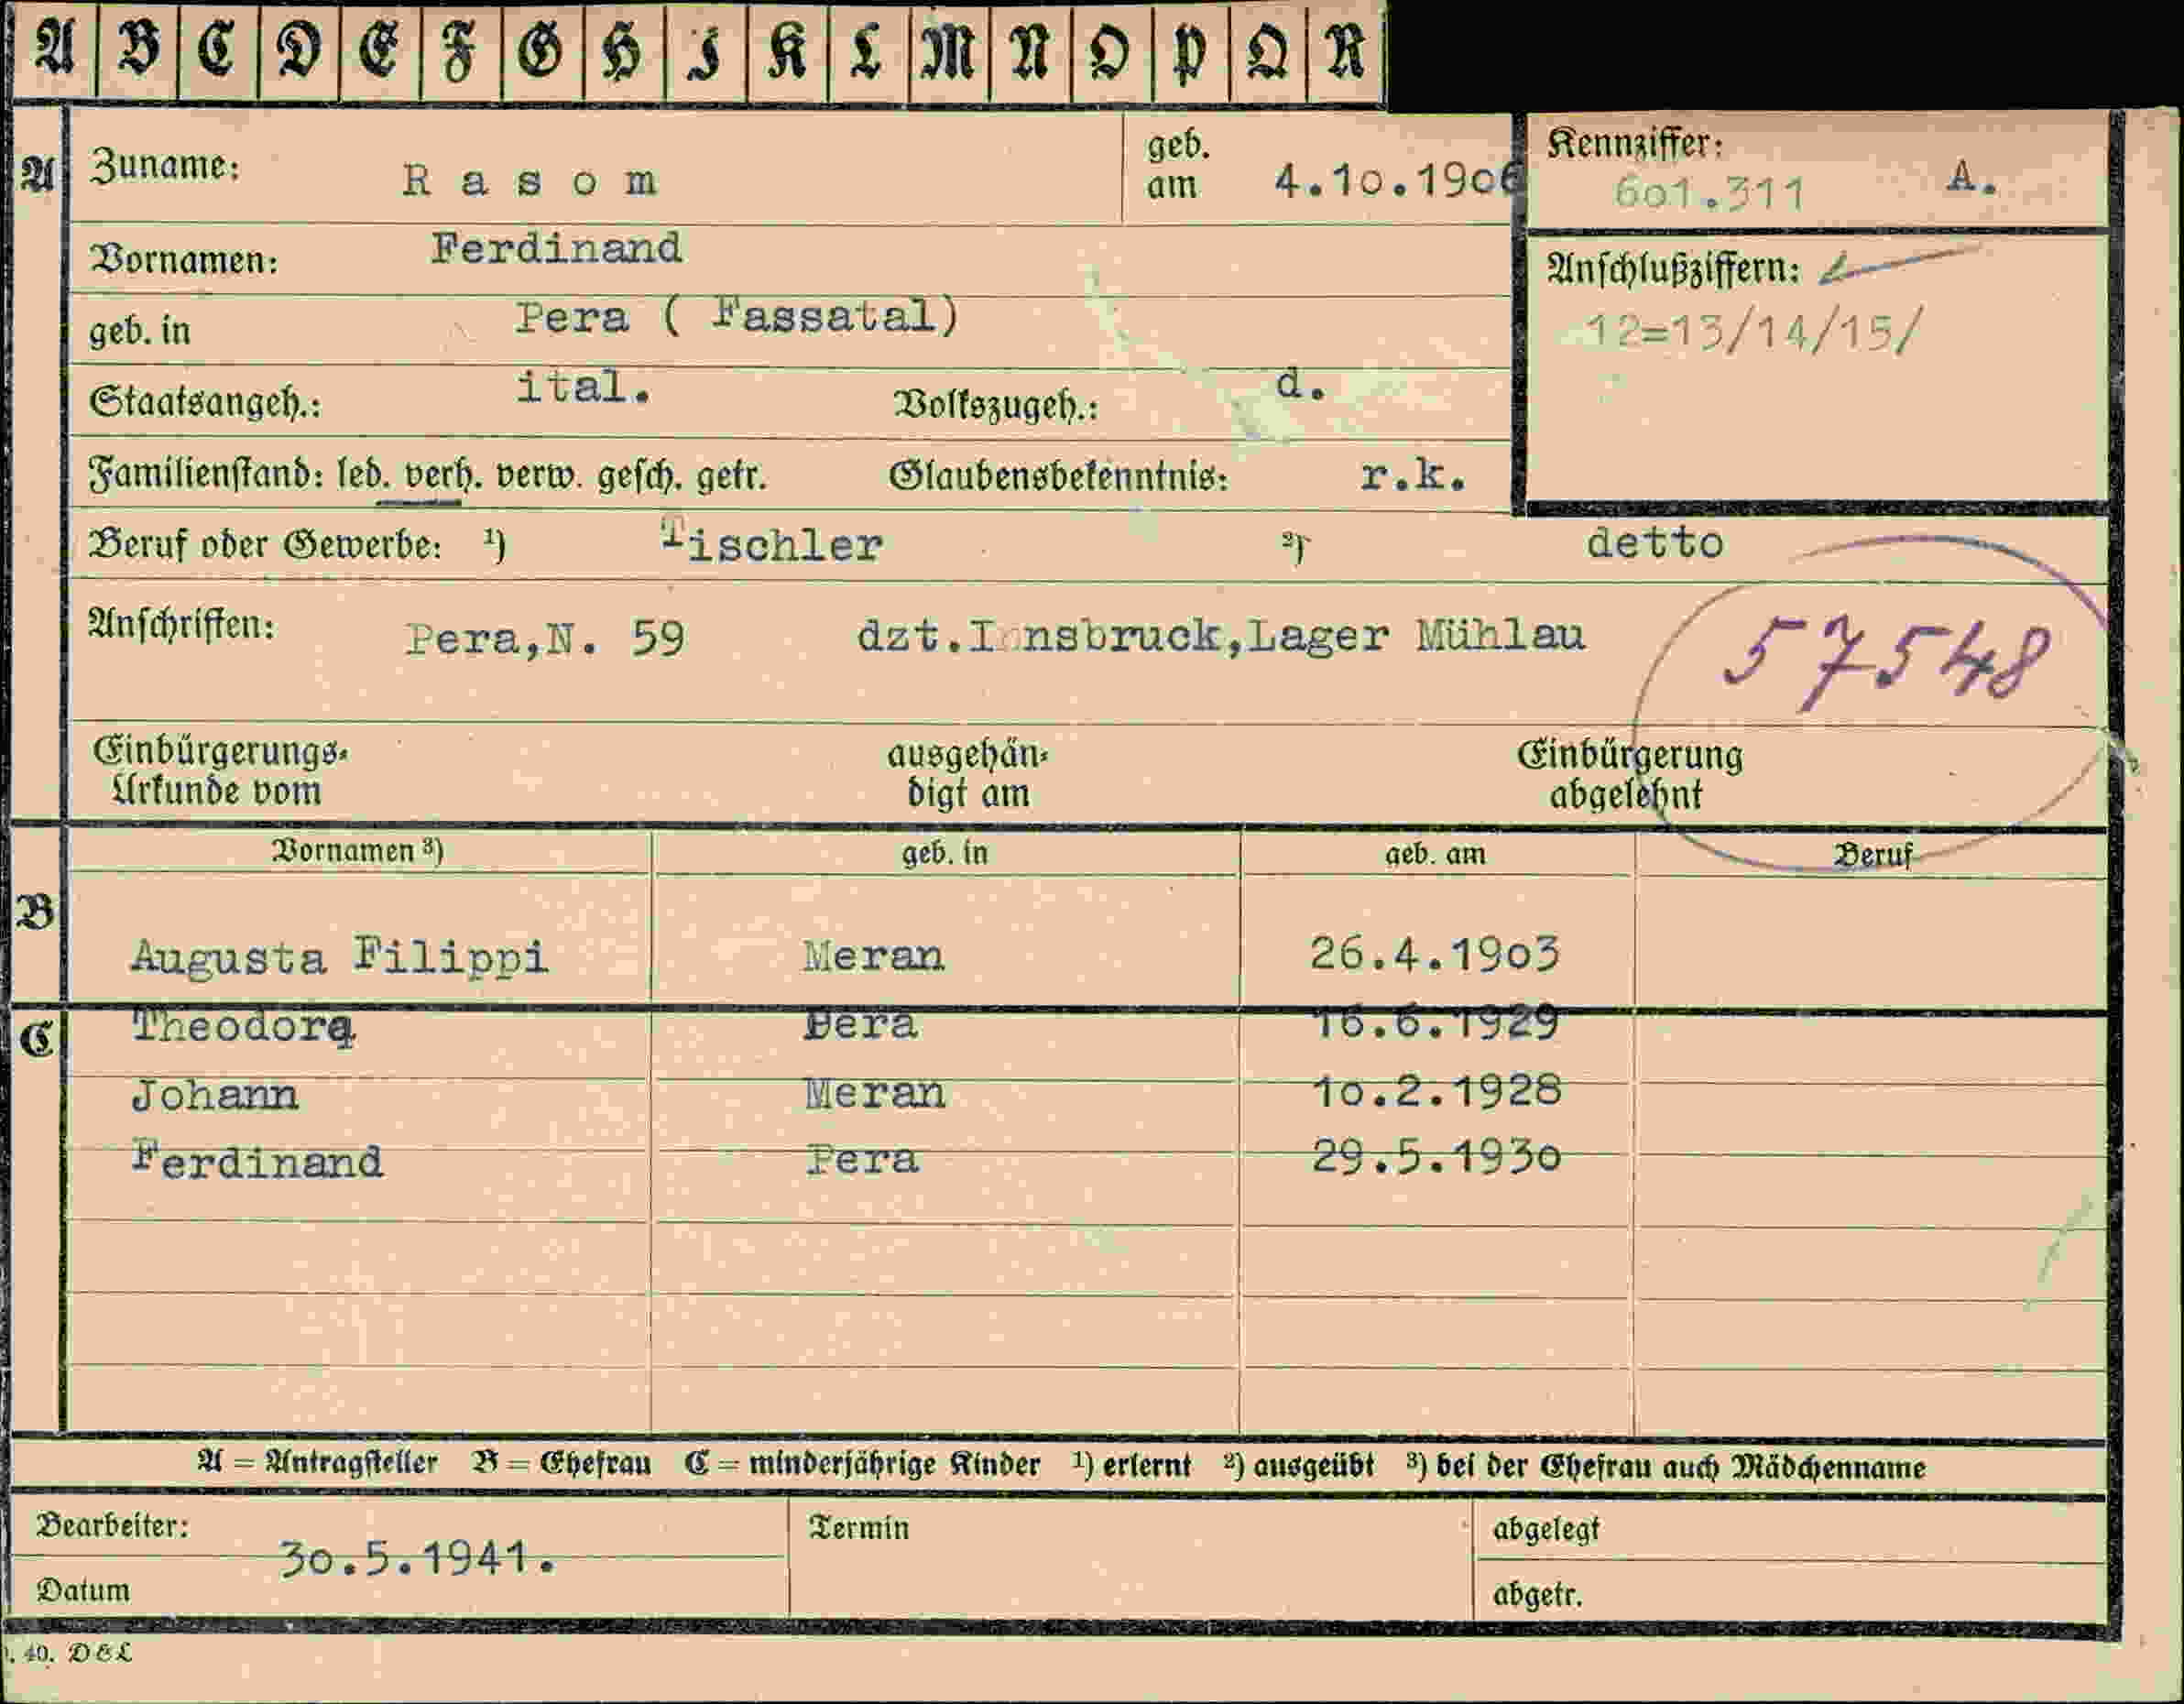 A B C D E F G H I K L M N O P Q R
A
Zuname: Rasom geb. am 4.10.1906
Kennziffer: 601.311 A.
Vornamen: Ferdinand
Anschlußziffern:
12=13/14/15/
geb. in Pera ( Fassatal)
Staatsangeh.: ital. Volkszugeh.: d.
Familienstand: led. verh. verw. gesch. getr. Glaubensbekenntnis: r.k.
Beruf oder Gewerbe: 1) Tischler 2) detto
Anschriften: Pera,N. 59 dzt.Innsbruck,Lager Mühlau 57548
Einbürgerungs- ausgehän- Einbürgerung
Urkunde vom digt am abgelehnt
B
Vornamen 3) geb. in geb. am Beruf
Augusta Filippi Meran 26.4.1903
C
Theodora Pera 16.6.1929
Johann Meran 10.2.1928
Ferdinand Pera 29.5.1930
A = Antragsteller B = Ehefrau C = minderjährige Kinder 1) erlernt 2) ausgeübt 3) bei der Ehefrau auch Mädchenname
Bearbeiter: Termin abgelegt
30.5.1941.
Datum abgetr.
. 40. DEL